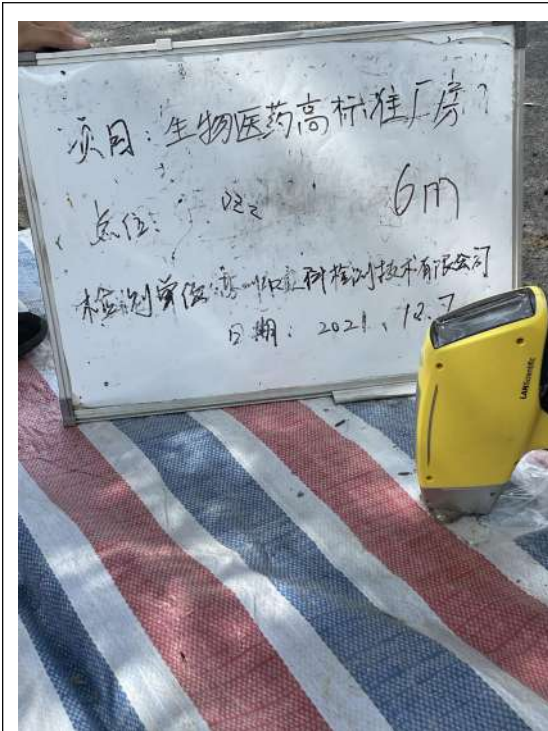 项目：生物医药高标准厂房
点位： 6m
检测单位： 科检测技术有限公司
日期：2021.12.7
LANScientific